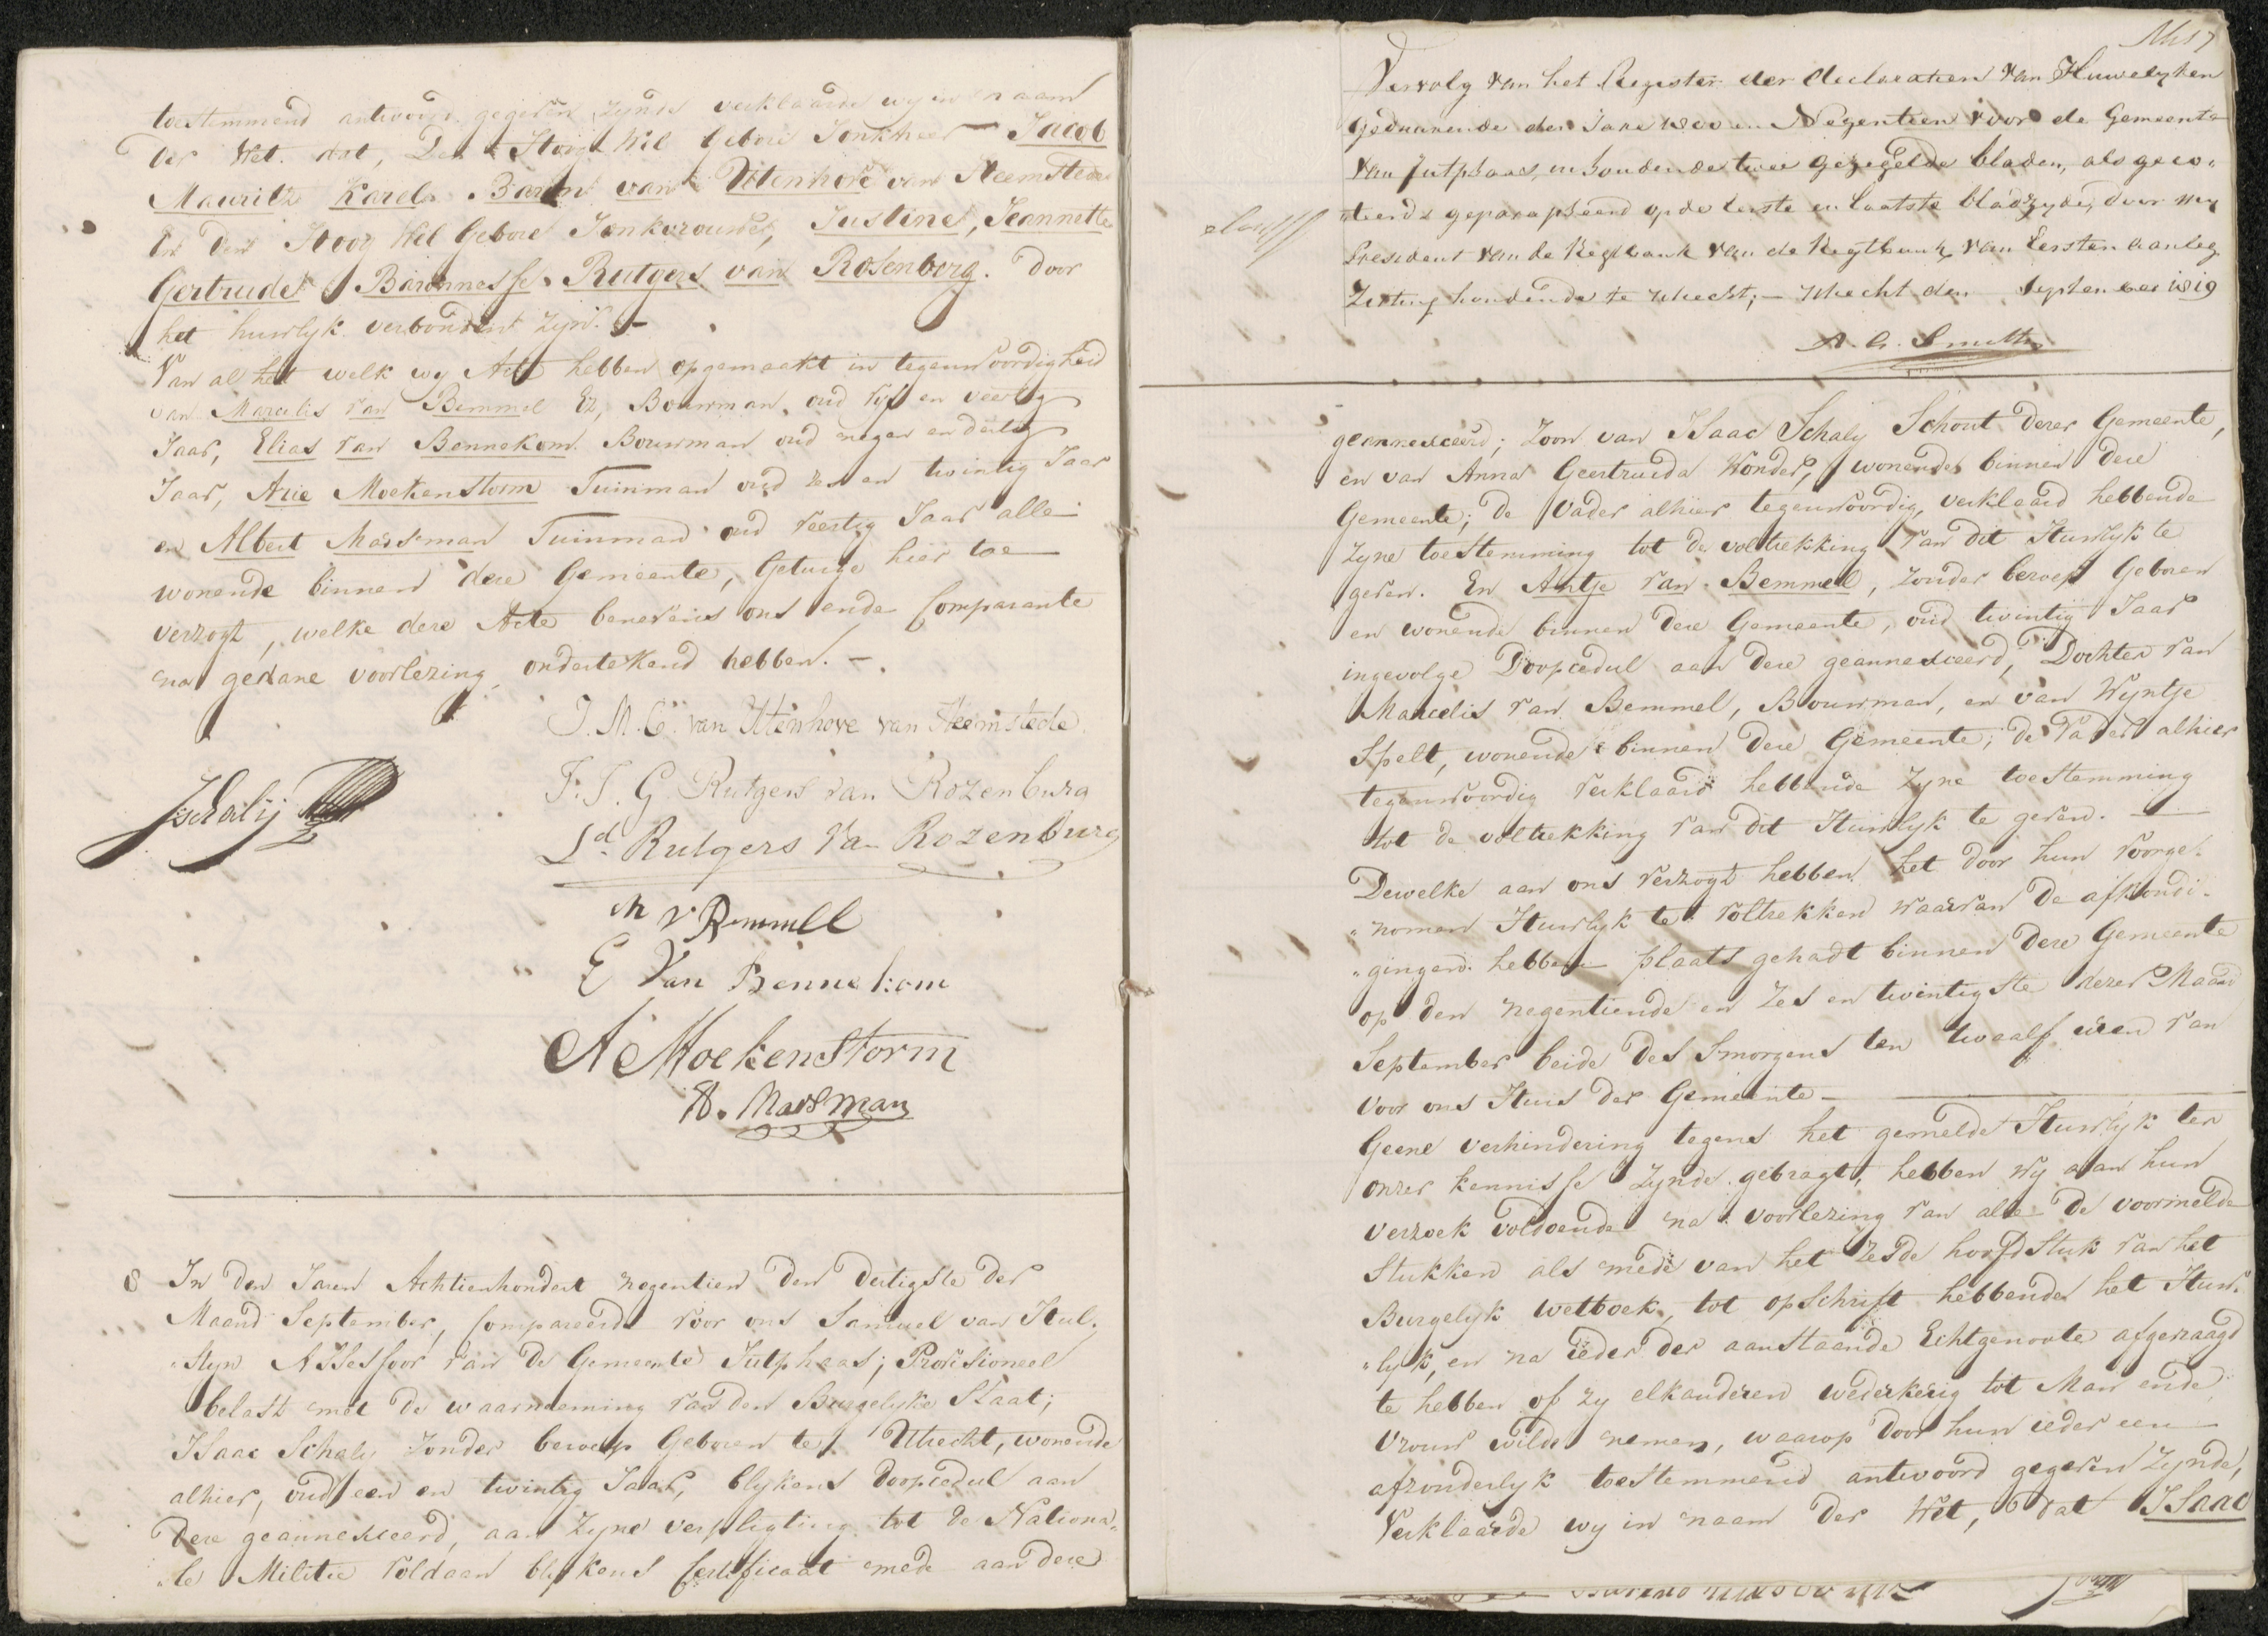 toestemmend antwoord gegeven zynde verklaarde wy in naam
der Wet. dat, Den Hoog Wel Gebore Jonkheer Jacob
Maurits Karel Baron van Utenhove van Heemstede
En den Hoog Wel Gebore Jonkvrouwe, Justine, Jeannette
Gertrude Baronnesse Rutgers van Rosenburg. door
het huwlyk verbonden zyn. —
Van al het welk wy Acte hebben opgemaakt in tegenwoordigheid
van Marcelis van Bemmel Ez, Bouwman, oud vyf en veertig
Jaar, Elias van Bennekom. Bouwman oud negen en dertig
Jaar, Arie Moekenstorm Tuinman oud zes en twintig Jaar
en Albert Maasman Tuinman oud veertig Jaar alle
wonende binnen deze Gemeente, Getuige hier toe
verzogt, welke deze Acte benevens ons ende Comparante
na gedane voorlezing ondertekend hebben. —
J. M. C. van Utenhove van Heemstede
F. J. G. Rutgers van Rozenburg
JSchalij
Ld. Rutgers van Rozenburg
M v Bemmell
E Van Bennekom
A Moekenstorm
A. Maasman
8 In den Jaren Achtienhondert negentien den dertigste der
Maand September, Compareerde voor ons Samuel van Hul.
"steyn Assessoor van de Gemeente Jutphaas; Provisioneel
belast met de waarneeming van den Burgelyke Staat;
Isaac Schaly zonder beroep Geboren te Utrecht, wonende
alhier, oud een en twintig Jaar, blykens doopcedul aan
deze geannexeerd, aan zyne verpligting tot de Nationa„
„le Militie voldaan blykens Certificaat mede aan deze
Vervolg van het Register der declaratien van Huwelyken
Geduurende den Jare 1800 en Negentien voor de Gemeente
van Jutphaas, inhoudende twee gezegelde bladen, als geco„
„teerd & geparapheerd op de eerste en laatste bladzyde, door my
President van de Regtbank van de Regtbank van Eersten aanleg
Zitting houdende te Utrecht; — Utrecht den September 1819
geannexceerd; Zoon van Isaac Schaly Schout dezer Gemeente,
en van Anna Geertruida Wonder, wonende binnen deze
Gemeente; de Vader alhier tegenwoordig, verklaard hebbende
zyne toestemming tot de voltrekking van dit Huwlyk te
geven. En Antje van Bemmel, zonder beroep Geboren
en wonende binnen deze Gemeente, oud twintig Jaar
ingevolge Doopcedul aan deze geannexceerd, Dochter van
Marcelis van Bemmel, Bouwman, en van Wyntje
Spelt, wonende binnen deze Gemeente; de Vader alhier
tegenwoordig verklaard hebbende zyne toestemming
tot de voltrekking van dit Huwlyk te geven. —
Dewelke aan ons verzogt hebben het door hun voorge„
„nomen Huwlyk te voltrekken waarvan de afkondi„
„gingen hebben plaats gehadt binnen deze Gemeente
op den negentiende en zes en twintigste dezer Maand
September beide des Smorgens ten twaalf uren van
voor ons Huis der Gemeente —
Geene verhindering tegens het gemelde Huwlyk ter
onzer kennisse zynde gebragt, hebben wy aan hun
verzoek voldoende na voorlezing van alle de voormelde
Stukken als mede van het zesde hoofdstuk van het
Burgelyk wetboek, tot opschrift hebbende het Huw„
„lyk, en na ieder der aanstaande Echtgenoote afgevraagd
te hebben of zy elkanderen wederkerig tot Man ende
Vrouw wilde nemen, waarop door hun ieder een
afzonderlyk toestemmend antwoord gegeven zynde,
Verklaarde wy in naam der Wet, dat Isaac